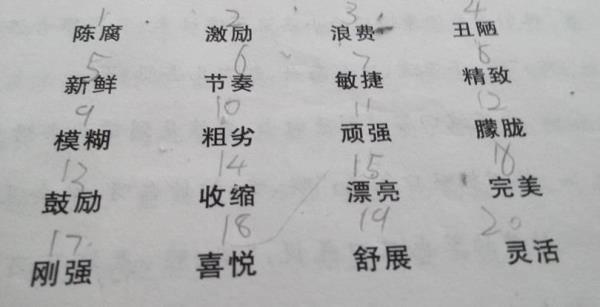 1 2 3 4
陈腐 激励 浪费 丑陋
5 6 7 8
新鲜 节奏 敏捷 精致
9 10 11 12
模糊 粗劣 顽强 朦胧
13 14 15 16
鼓励 收缩 漂亮 完美
17 18 19 20
刚强 喜悦 舒展 灵活